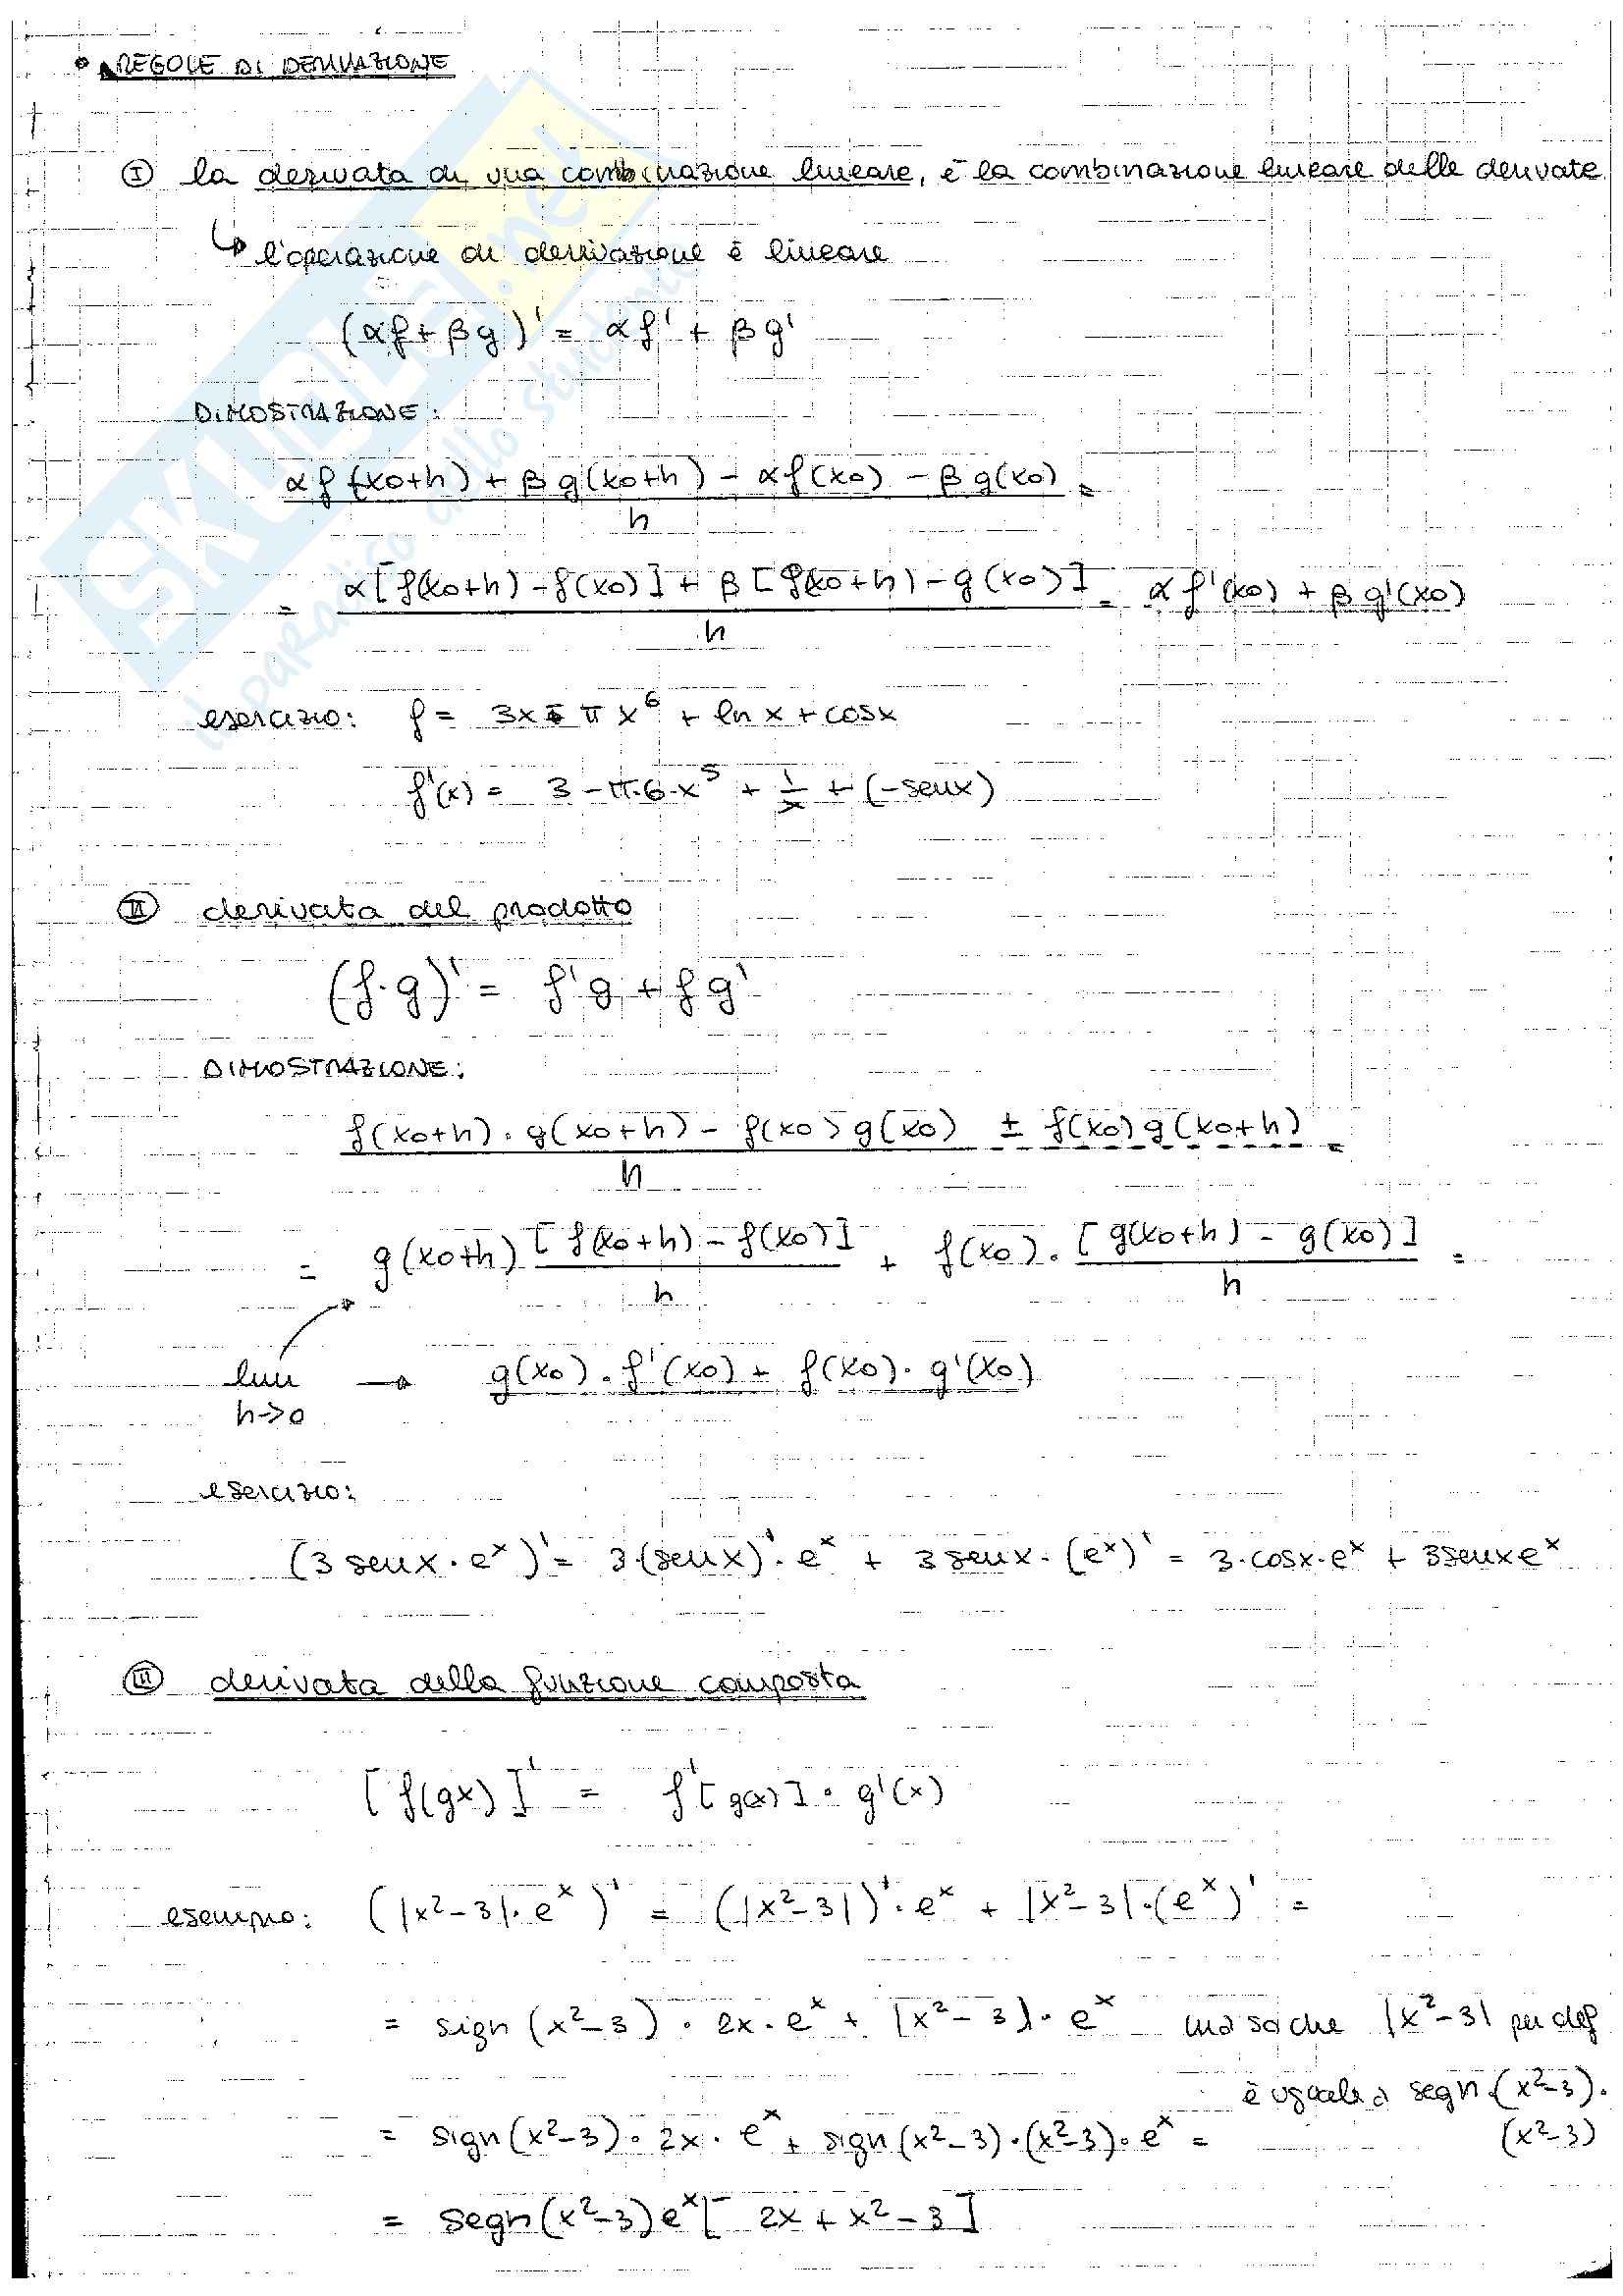 • REGOLE DI DERIVAZIONE
I la derivata di una combinazione lineare, è la combinazione lineare delle derivate
↳ l'operazione di derivazione è lineare
(αf + βg)' = αf' + βg'
DIMOSTRAZIONE:
αf(x0+h) + βg(x0+h) - αf(x0) - βg(x0) =
h
= α[f(x0+h) - f(x0)] + β[g(x0+h) - g(x0)] = αf'(x0) + βg'(x0)
h
esercizio: f = 3x - πx⁶ + ln x + cosx
f'(x) = 3 - π·6·x⁵ + 1/x + (-senx)
II derivata del prodotto
(f·g)' = f'g + fg'
DIMOSTRAZIONE:
f(x0+h)·g(x0+h) - f(x0)g(x0) ± f(x0)g(x0+h) =
h
= g(x0+h) [f(x0+h) - f(x0)] + f(x0)· [g(x0+h) - g(x0)] =
h h
lim → g(x0)·f'(x0) + f(x0)·g'(x0)
h→0
esercizio:
(3 senx·eˣ)' = 3·(senx)'·eˣ + 3 senx·(eˣ)' = 3·cosx·eˣ + 3senxeˣ
III derivata della funzione composta
[f(gx)]' = f'[g(x)]·g'(x)
esempio: (|x²-3|·eˣ)' = (|x²-3|)'·eˣ + |x²-3|·(eˣ)' =
= sign(x²-3)·2x·eˣ + |x²-3|·eˣ ma so che |x²-3| per def
è uguale a segn(x²-3)·
(x²-3)
= sign(x²-3)·2x·eˣ + sign(x²-3)·(x²-3)·eˣ =
= segn(x²-3)eˣ[2x + x²-3]
SKUOLA.net
il paradiso dello studente